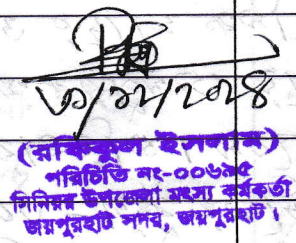 ৩০/১২/২০২৪
(রফিকুল ইসলাম)
পরিচিতি নং-০০৬৯৫
সিনিয়র উপজেলা মৎস্য কর্মকর্তা
জয়পুরহাট সদর, জয়পুরহাট।